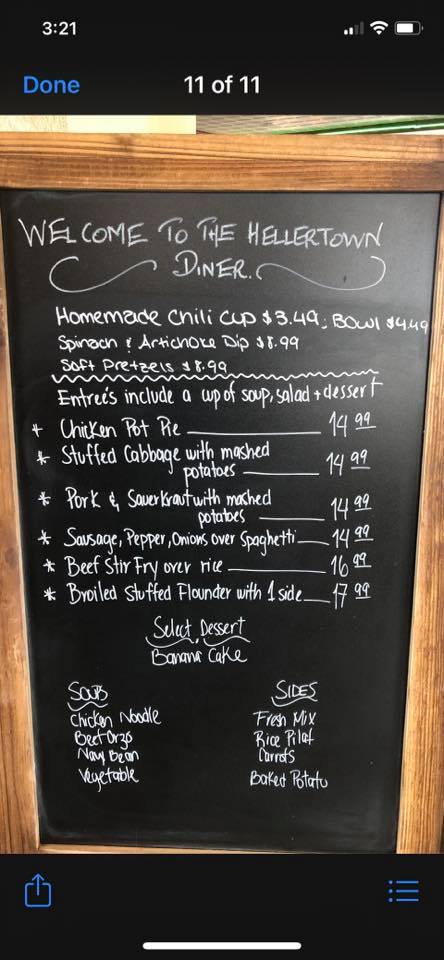 3:21
Done
11 of 11
WELCOME TO THE HELLERTOWN
DINER.
Homemade Chili Cup $3.49; Bowl $4.49
Spinach & Artichoke Dip $8.99
Soft Pretzels $8.99
Entree's include a cup of soup, salad + dessert
* Chicken Pot Pie 14 99
* Stuffed Cabbage with mashed
potatoes 14 99
* Pork & Sauerkraut with mashed
potatoes 14 99
* Sausage, Pepper, Onions over Spaghetti 14 99
* Beef Stir Fry over rice 16 99
* Broiled Stuffed Flounder with 1 side 17 99
Select Dessert
Banana Cake
Soups
Chicken Noodle
Beef Orzo
Navy Bean
Vegetable
SIDES
Fresh Mix
Rice Pilaf
Carrots
Baked Potato